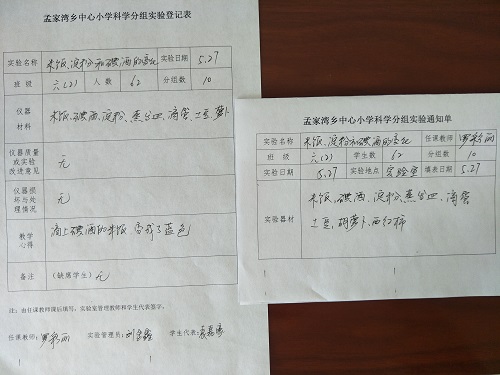 孟家湾乡中心小学科学分组实验登记表
实验名称 米饭、淀粉和碘酒的变化 实验日期 5.27
班 级 六(2) 人 数 62 分组数 10
仪器
材料
米饭、碘酒、淀粉、蒸发皿、滴管、土豆、萝卜
仪器质量
或实验
改进意见
无
仪器损
坏与处
理情况
无
教学
心得
滴上碘酒的米饭变成了蓝色
备注 (缺席学生) 无
注：由任课教师课后填写，实验室管理教师和学生代表签字。
任课教师: 罗彩丽 实验管理员: 学生代表:
孟家湾乡中心小学科学分组实验通知单
实验名称 米饭、淀粉和碘酒的变化 任课教师 罗彩丽
班 级 六(2) 学生数 62 分组数 10
实验日期 5.27 实验地点 实验室 填表日期 5.27
实验器材
米饭、碘酒、淀粉、蒸发皿、滴管
土豆、胡萝卜、西红柿